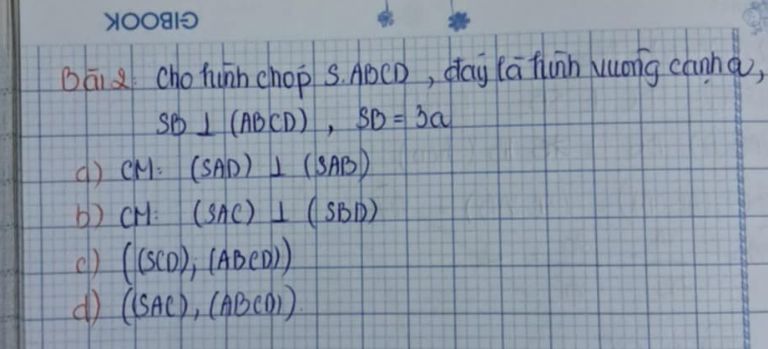 GIBOOK
Bài 2. Cho hình chóp S.ABCD, đáy là hình vuông cạnh a,
SB ⊥ (ABCD), SB = 3a
a) CM: (SAD) ⊥ (SAB)
b) CM: (SAC) ⊥ (SBD)
c) ((SCD), (ABCD))
d) ((SAC), (ABCD)).